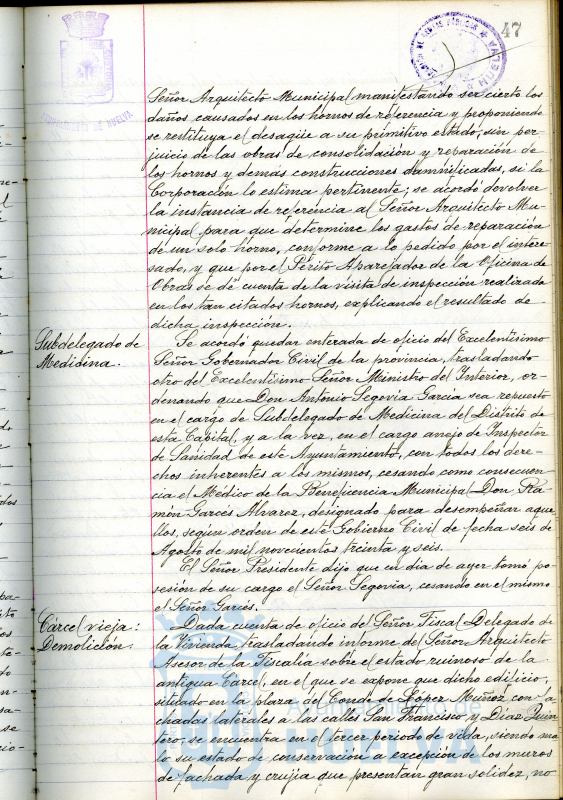 47
AYUNTAMIENTO DE HUELVA
Señor Arquitecto Municipal manifestando ser cierto los
daños causados en los hornos de referencia y proponiendo
se restituya el desagüe a su primitivo estado, sin per-
juicio de las obras de consolidación y reparación de
los hornos y demas construcciones damnificadas, si la
Corporación lo estima pertinente; se acordó devolver
la instancia de referencia al Señor Arquitecto Mu-
nicipal para que determine los gastos de reparación
de un solo horno, conforme a lo pedido por el intere-
sado, y que por el Périto Aparejador de la Oficina de
Obras se dé cuenta de la visita de inspección realizada
en los tan citados hornos, explicando el resultado de
dicha inspección.
Subdelegado de
Medicina.
Se acordó quedar enterada de oficio del Excelentísimo
Señor Gobernador Civil de la provincia, trasladando
otro del Excelentísimo Señor Ministro del Interior, or-
denando que Don Antonio Segovia Garcia sea repuesto
en el cargo de Subdelegado de Medicina del Distrito de
esta Capital, y a la vez, en el cargo anejo de Inspector
de Sanidad de este Ayuntamiento, con todos los dere-
chos inherentes a los mismos, cesando como consecuen-
cia el Médico de la Beneficencia Municipal Don Ra-
món Garcés Alvarez, designado para desempeñar aque-
llos, segun orden de este Gobierno Civil de fecha seis de
Agosto de mil novecientos treinta y seis.
El Señor Presidente dijo que en dia de ayer tomó po-
sesión de su cargo el Señor Segovia, cesando en el mismo
el Señor Garcés.
Carcel vieja:
Demolición.
Dada cuenta de oficio del Señor Fiscal Delegado de
la Vivienda, trasladando informe del Señor Arquitecto
Asesor de la Fiscalía sobre el estado ruinoso de la
antigua Cárcel, en el que se expone que dicho edificio,
situado en la plaza del Conde de López Muñoz con fa-
chadas laterales a las calles San Francisco y Diaz Quin-
tero, se encuentra en el tercer periodo de vida, siendo ma-
lo su estado de conservación a excepción de los muros
de fachada y crujia que presentan gran solidez, no
Ayuntamiento de
HUELVA